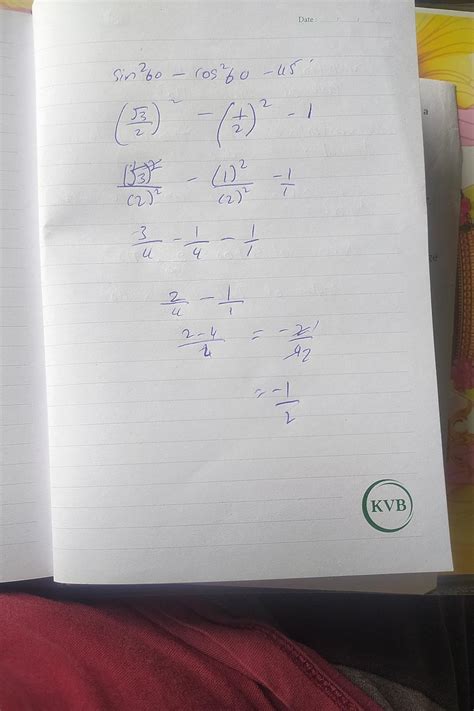 Date
sin²60 - cos²60 - 45
(√3/2)² - (1/2)² - 1
(√3)²/(2)² - (1)²/(2)² - 1/1
3/4 - 1/4 - 1/1
2/4 - 1/1
2-4/4 = -2 1/4 2
= -1/2
KVB